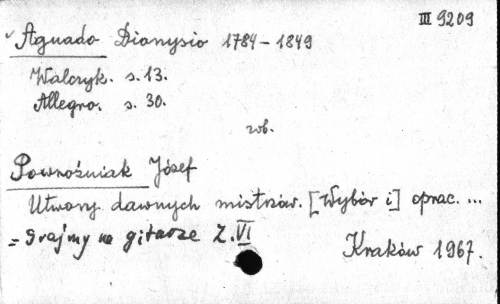 III 9209
Aguado Dionysio 1784-1849
Walczyk. s. 13.
Allegro. s. 30.
zob.
Powroźniak Józef
Utwory dawnych mistrzów. [Wybór i] oprac. ...
= Grajmy na gitarze Z. VI
Kraków 1967.